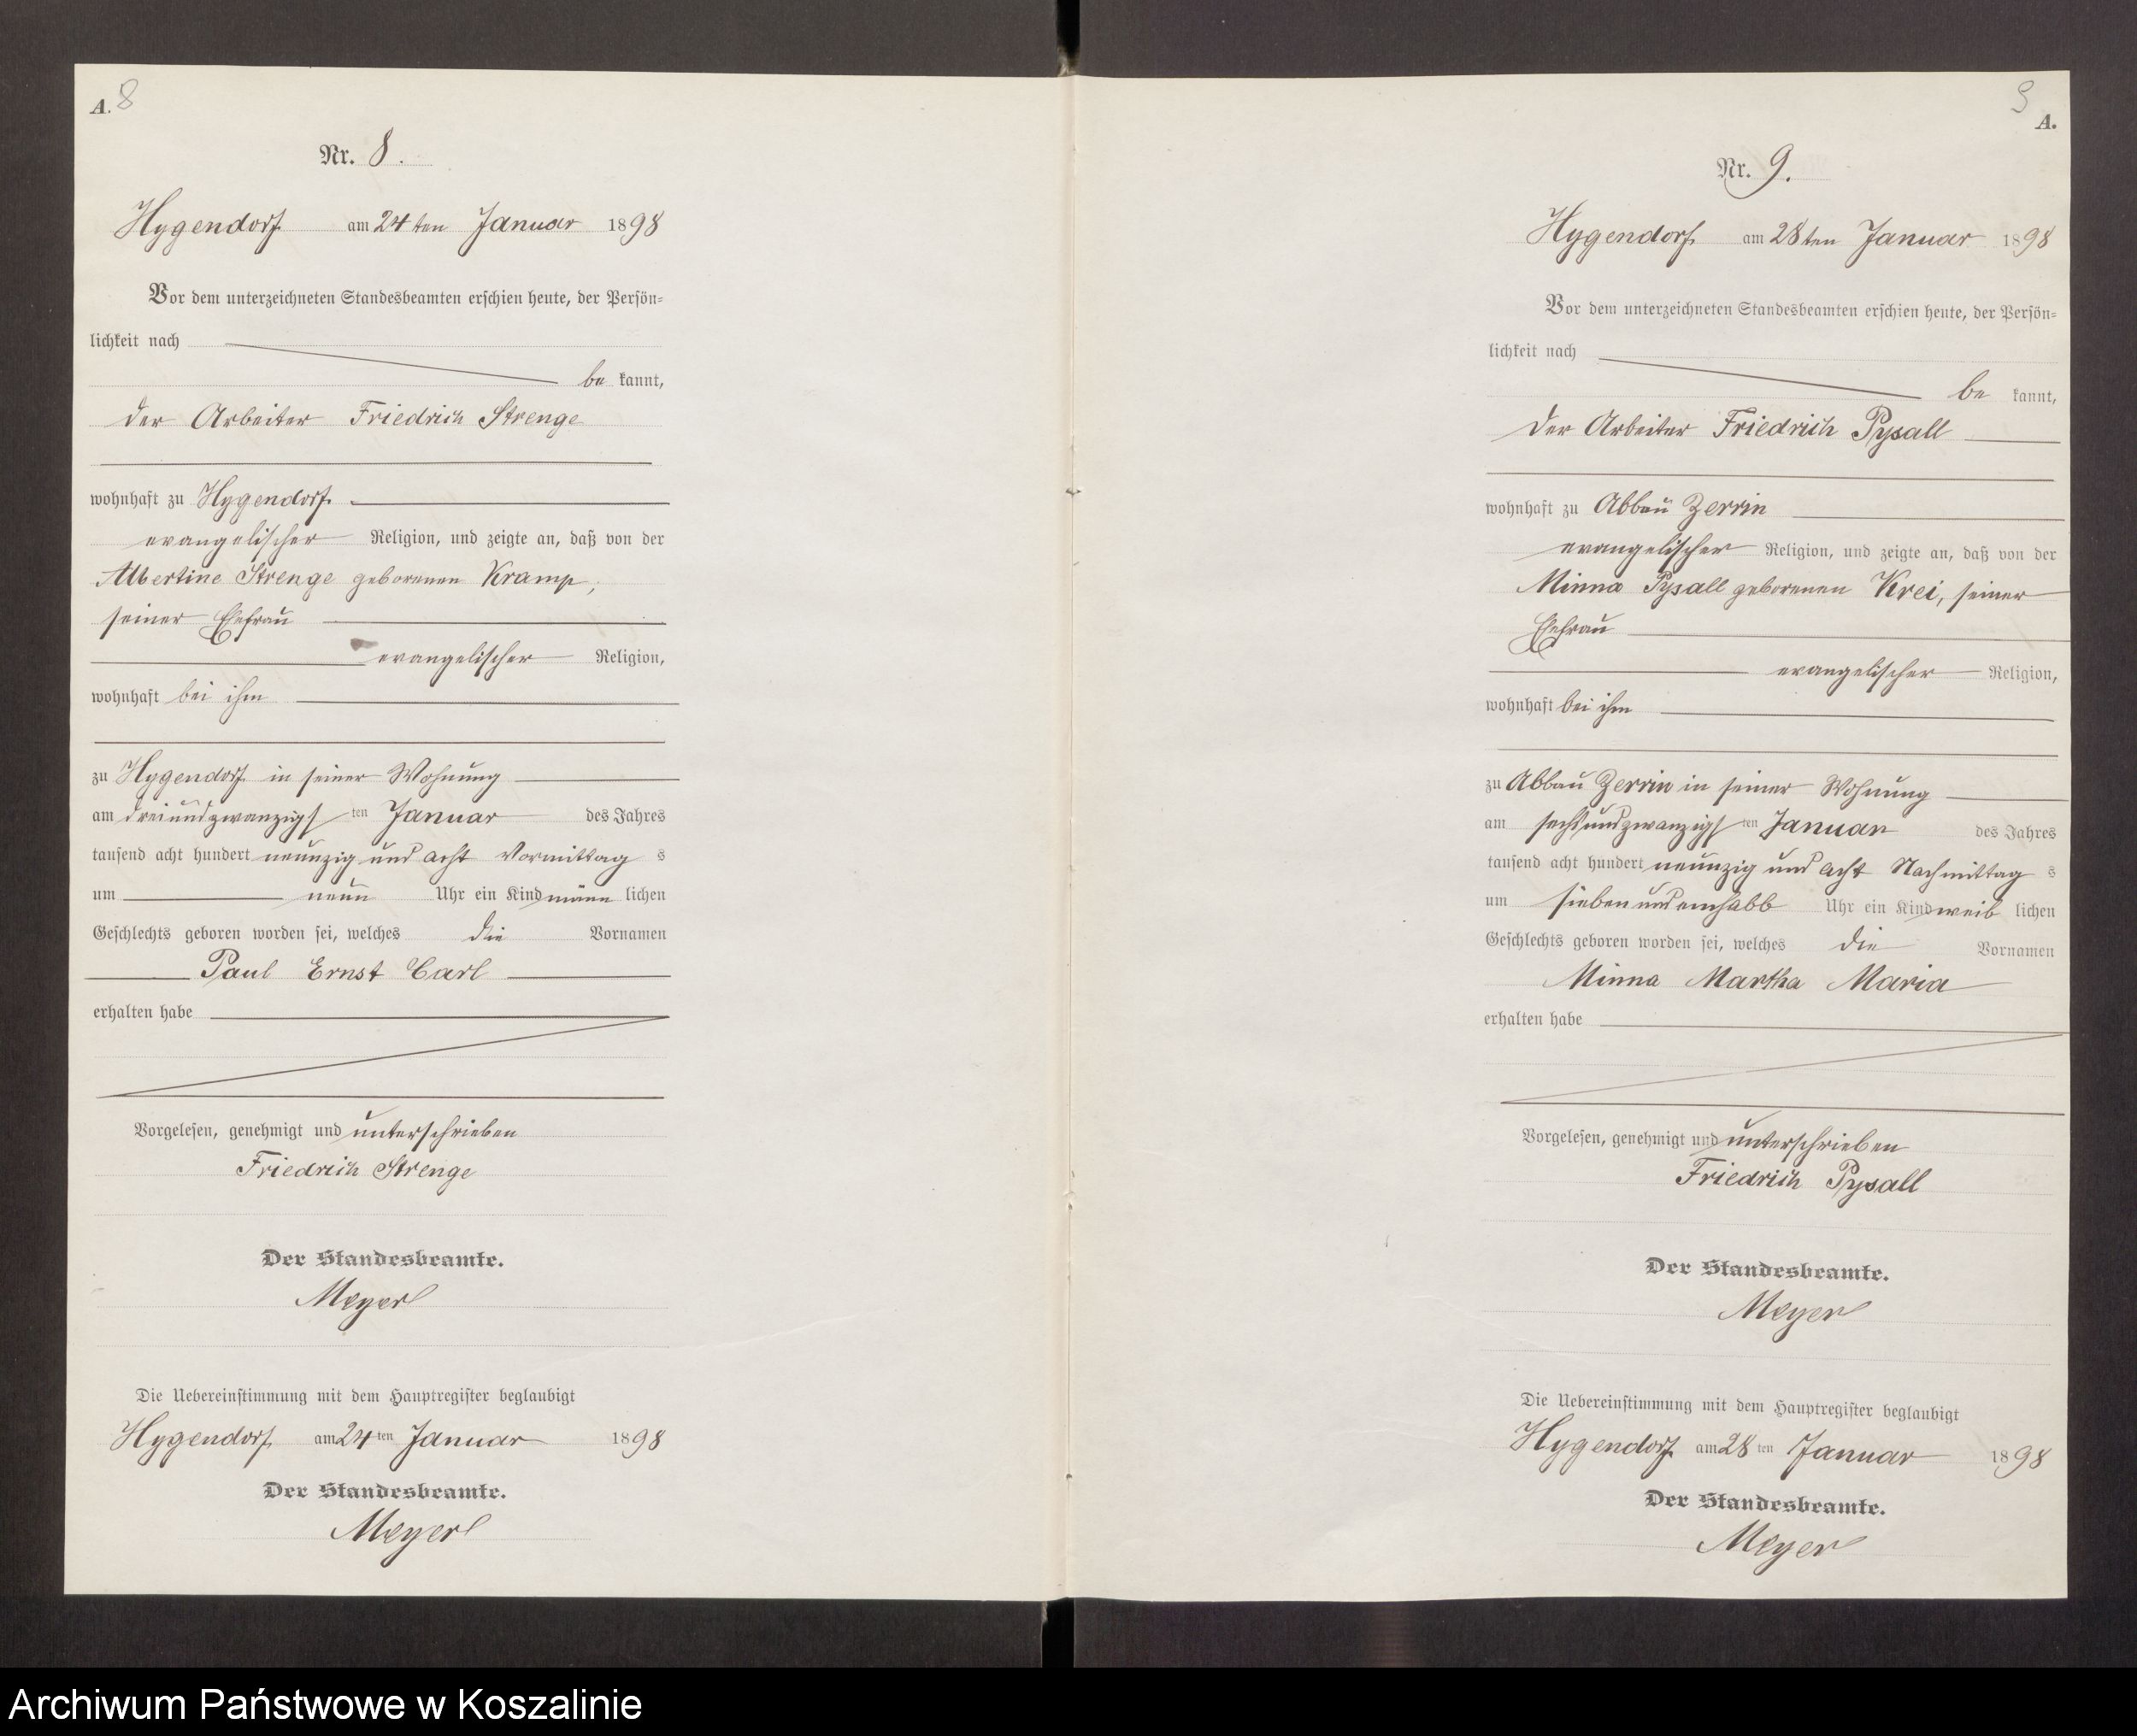 A. 8
Nr. 8.
Hygendorf am 24ten Januar 1898
Vor dem unterzeichneten Standesbeamten erschien heute, der Persön=
lichkeit nach
be kannt,
der Arbeiter Friedrich Strenge
wohnhaft zu Hygendorf
evangelischer Religion, und zeigte an, daß von der
Albertine Strenge geborenen Kramp,
seiner Ehefrau
evangelischer Religion,
wohnhaft bei ihm
zu Hygendorf in seiner Wohnung
am dreiundzwanzigsten Januar des Jahres
tausend acht hundert neunzig und acht Vormittag s
um neun Uhr ein Kind männ lichen
Geschlechts geboren worden sei, welches die Vornamen
Paul Ernst Carl
erhalten habe
Vorgelesen, genehmigt und unterschrieben
Friedrich Strenge
Der Standesbeamte.
Meyer
Die Uebereinstimmung mit dem Hauptregister beglaubigt
Hygendorf am 24ten Januar 1898
Der Standesbeamte.
Meyer
9
A.
Nr. 9.
Hygendorf am 28ten Januar 1898
Vor dem unterzeichneten Standesbeamten erschien heute, der Persön=
lichkeit nach
be kannt,
der Arbeiter Friedrich Pysall
wohnhaft zu Abbau Zerrin
evangelischer Religion, und zeigte an, daß von der
Minna Pysall geborenen Krei, seiner
Ehefrau
evangelischer Religion,
wohnhaft bei ihm
zu Abbau Zerrin in seiner Wohnung
am sechsundzwanzigsten Januar des Jahres
tausend acht hundert neunzig und acht Nachmittag s
um sieben und einhalb Uhr ein Kind weib lichen
Geschlechts geboren worden sei, welches die Vornamen
Minna Martha Maria
erhalten habe
Vorgelesen, genehmigt und unterschrieben
Friedrich Pysall
Der Standesbeamte.
Meyer
Die Uebereinstimmung mit dem Hauptregister beglaubigt
Hygendorf am 28ten Januar 1898
Der Standesbeamte.
Meyer
Archiwum Państwowe w Koszalinie